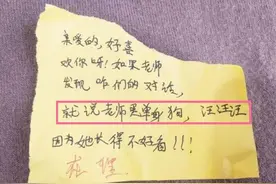 亲爱的,好喜
欢你呀!如果老师
发现 咱们的对话,
就说老师是单身狗,汪汪汪
因为她长得不好看!!!